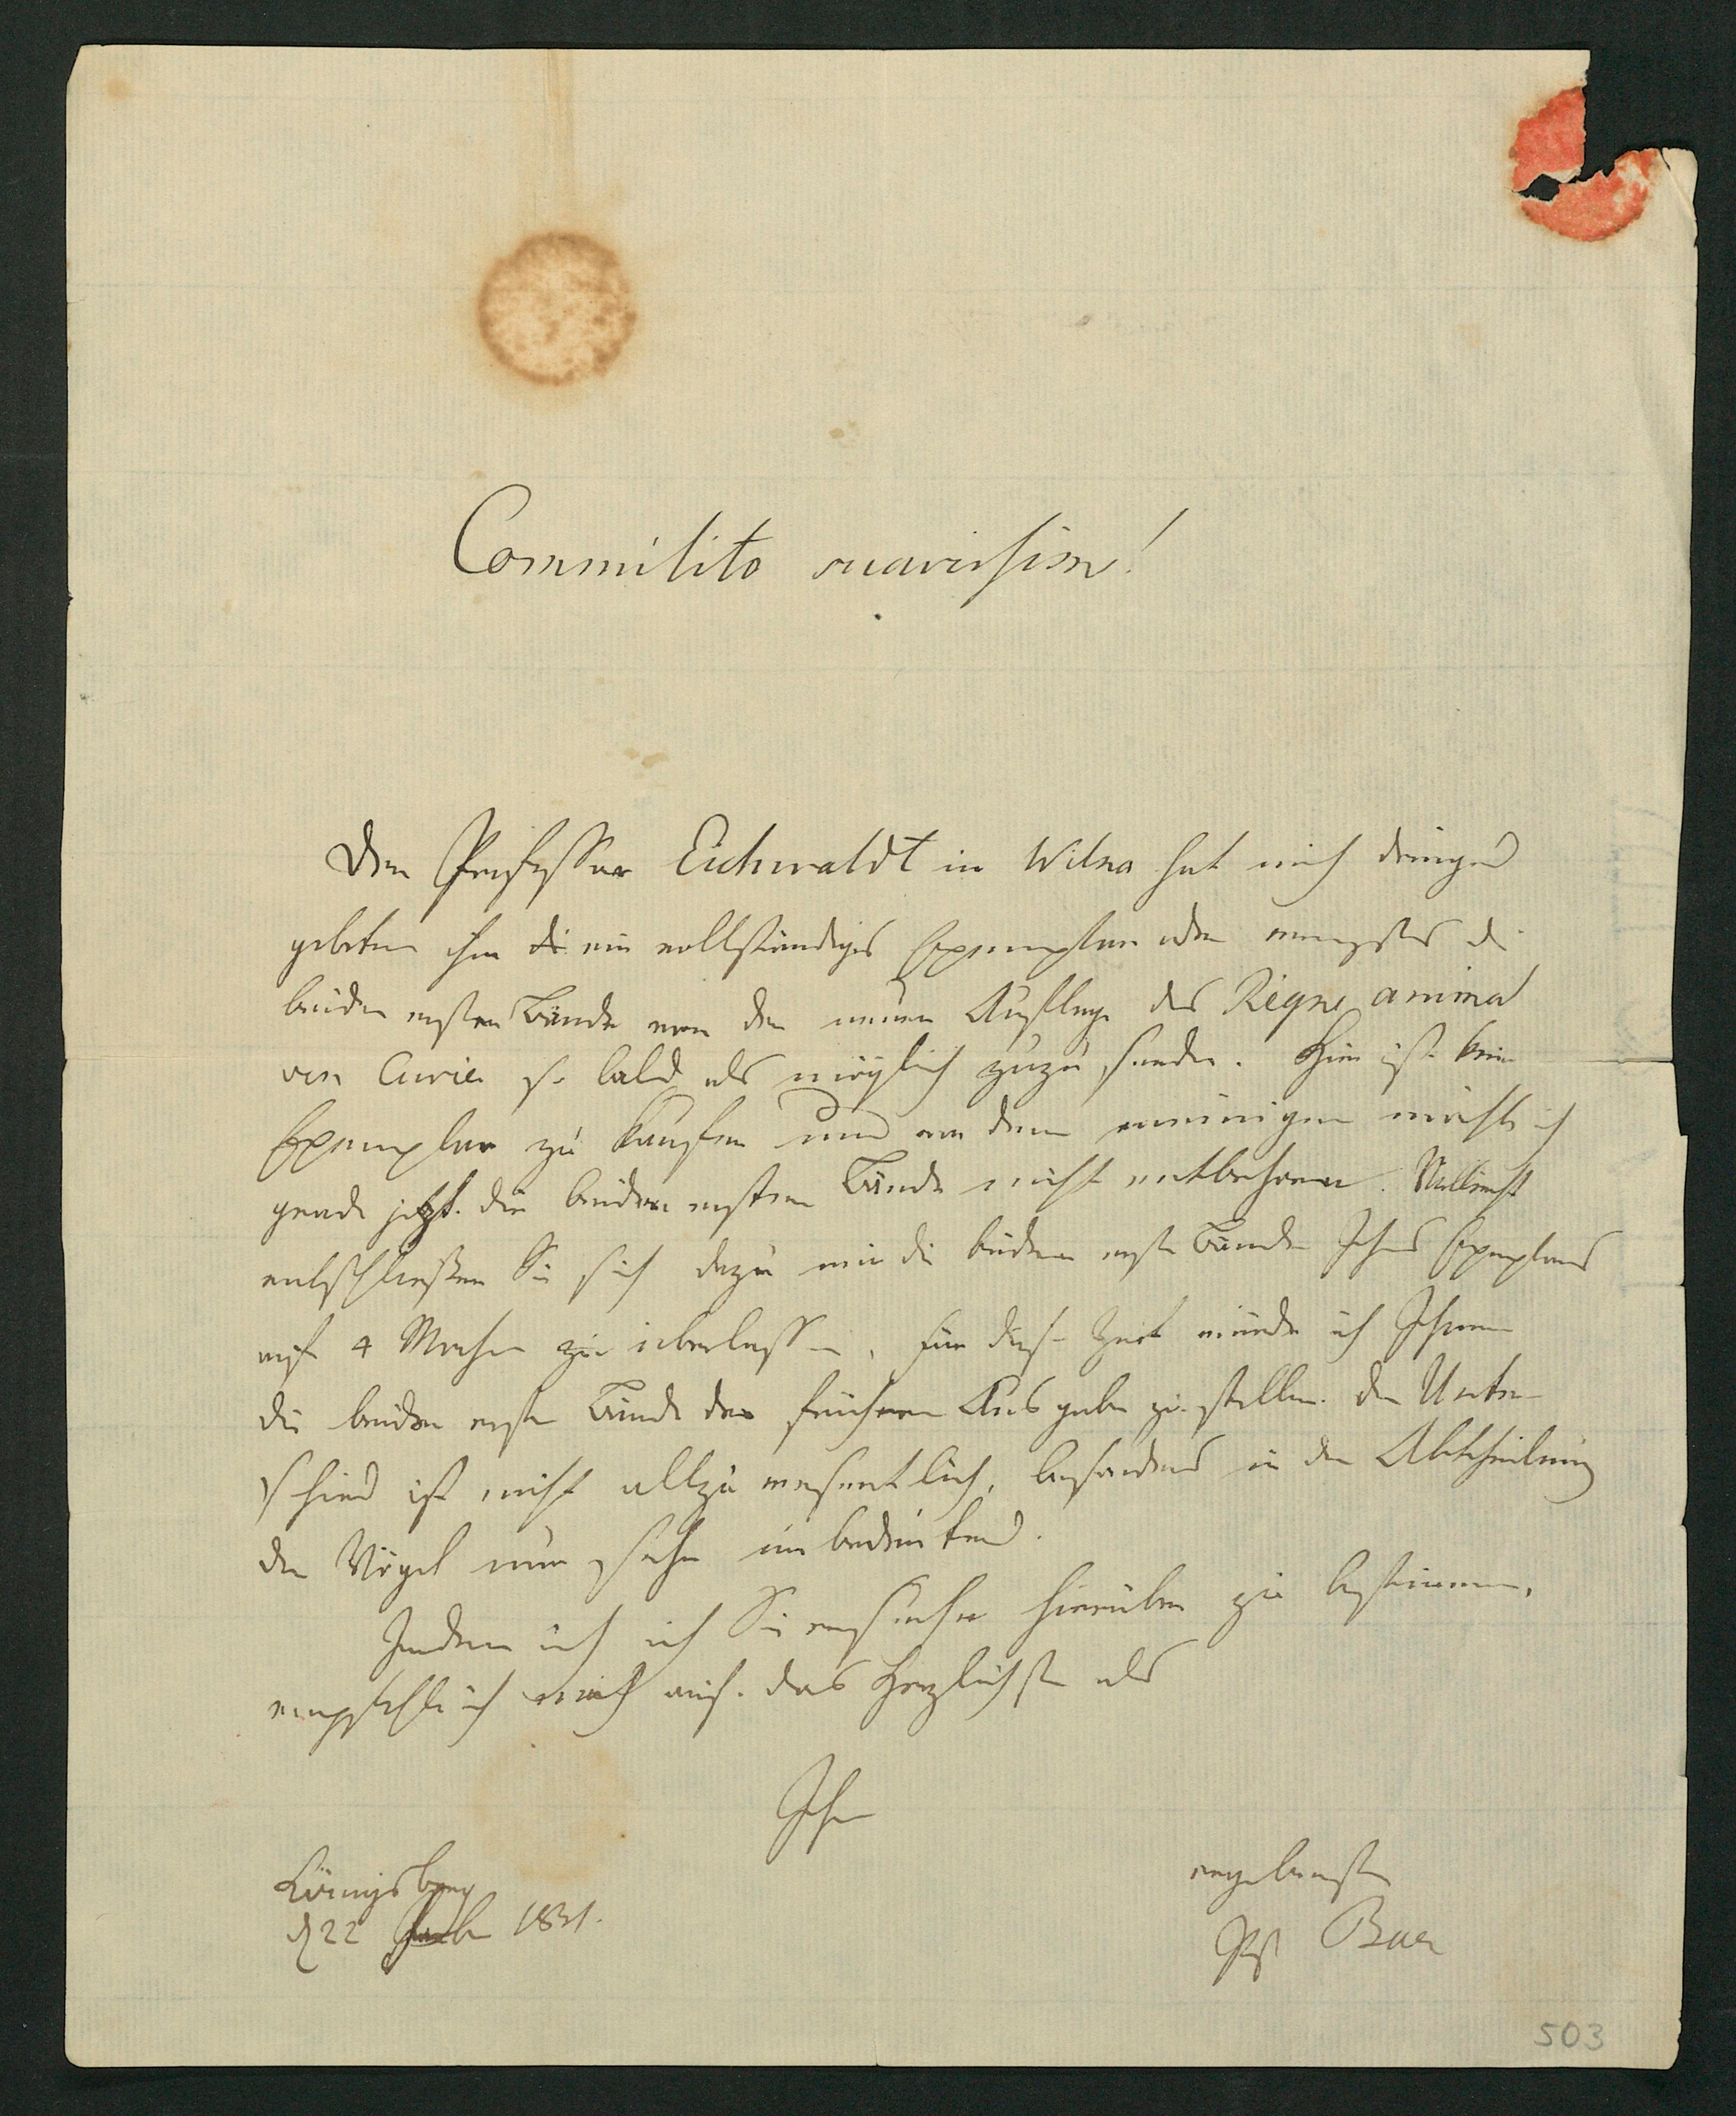 Commilito suavissime!
Der Professor Eichwaldt in Wilna hat mich dringend
gebeten ihm ein vollständiges Exemplar oder wenigstens die
beiden ersten Bände von der neuen Auflage des Règne animal
von Cuvier so bald als möglich zuzusenden. Hier ist kein
Exemplar zu kaufen und von dem meinigen möchte ich
gerade jetzt die beiden ersten Bände nicht entbehren. Vielleicht
entschließen Sie sich dazu mir die beiden ersten Bände Ihres Exemplars
auf 4 Wochen zu überlassen. Für diese Zeit würde ich Ihnen
die beiden ersten Bände der früheren Ausgabe zustellen. Der Unter-
schied ist nicht allzu wesentlich, besonders in der Abtheilung
der Vögel nur sehr unbedeutend.
Indem ich Sie ersuche hierüber zu bestimmen,
empfehle ich mich auf das Herzlichste als
Ihr
Königsberg
d 22 1831.
ergebenster
Baer
503